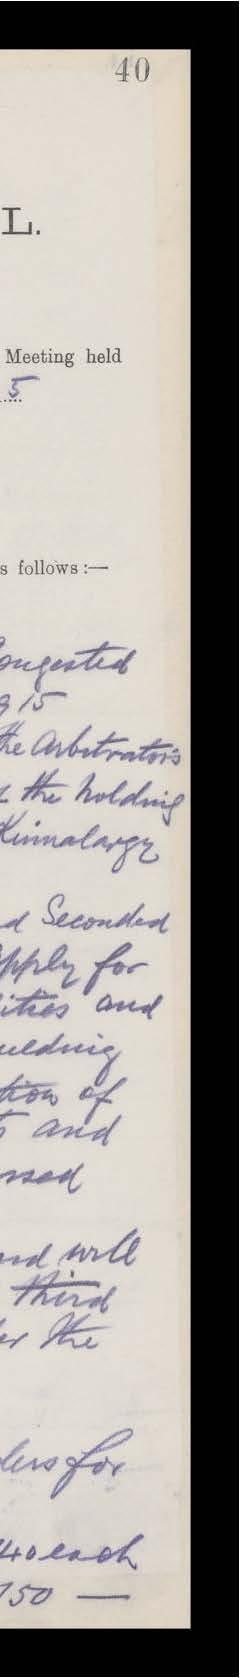 40
L.
Meeting held
5
s follows :—
ongested
g 15
the Arbitrators
the holding
Kinnalargy
d Seconded
pply for
ities and
uilding
tion of
s and
ssed
nd will
third
er the
ders for
40 each
150 —